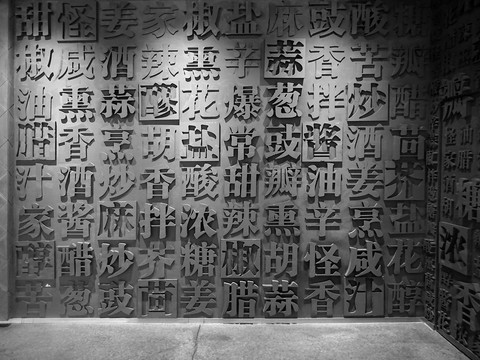 甜怪姜家椒盐麻豉酸糖
椒咸酒辣熏辛蒜香苦瓣
油熏蒜醪花爆葱拌炒醋
腊香烹胡盐常豉酱酒茴
汁酒炒香酸甜瓣油姜芥
家酱麻拌浓辣熏辛烹盐
醇醋炒芥糖椒胡怪咸花
苦葱豉茴姜腊蒜香汁醇
糖
浓
香